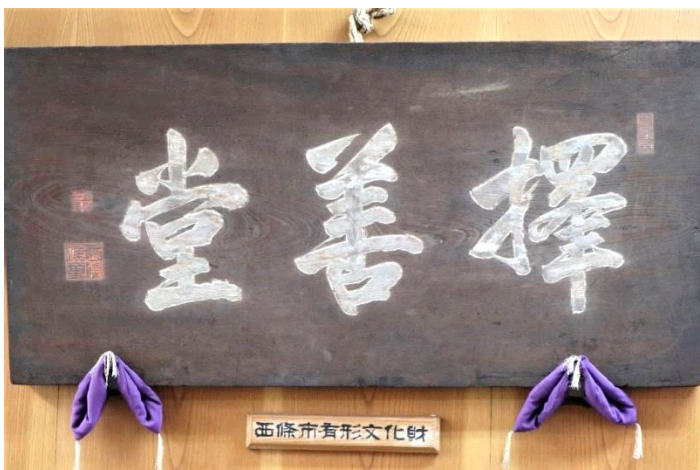 擇善堂
西條市有形文化財